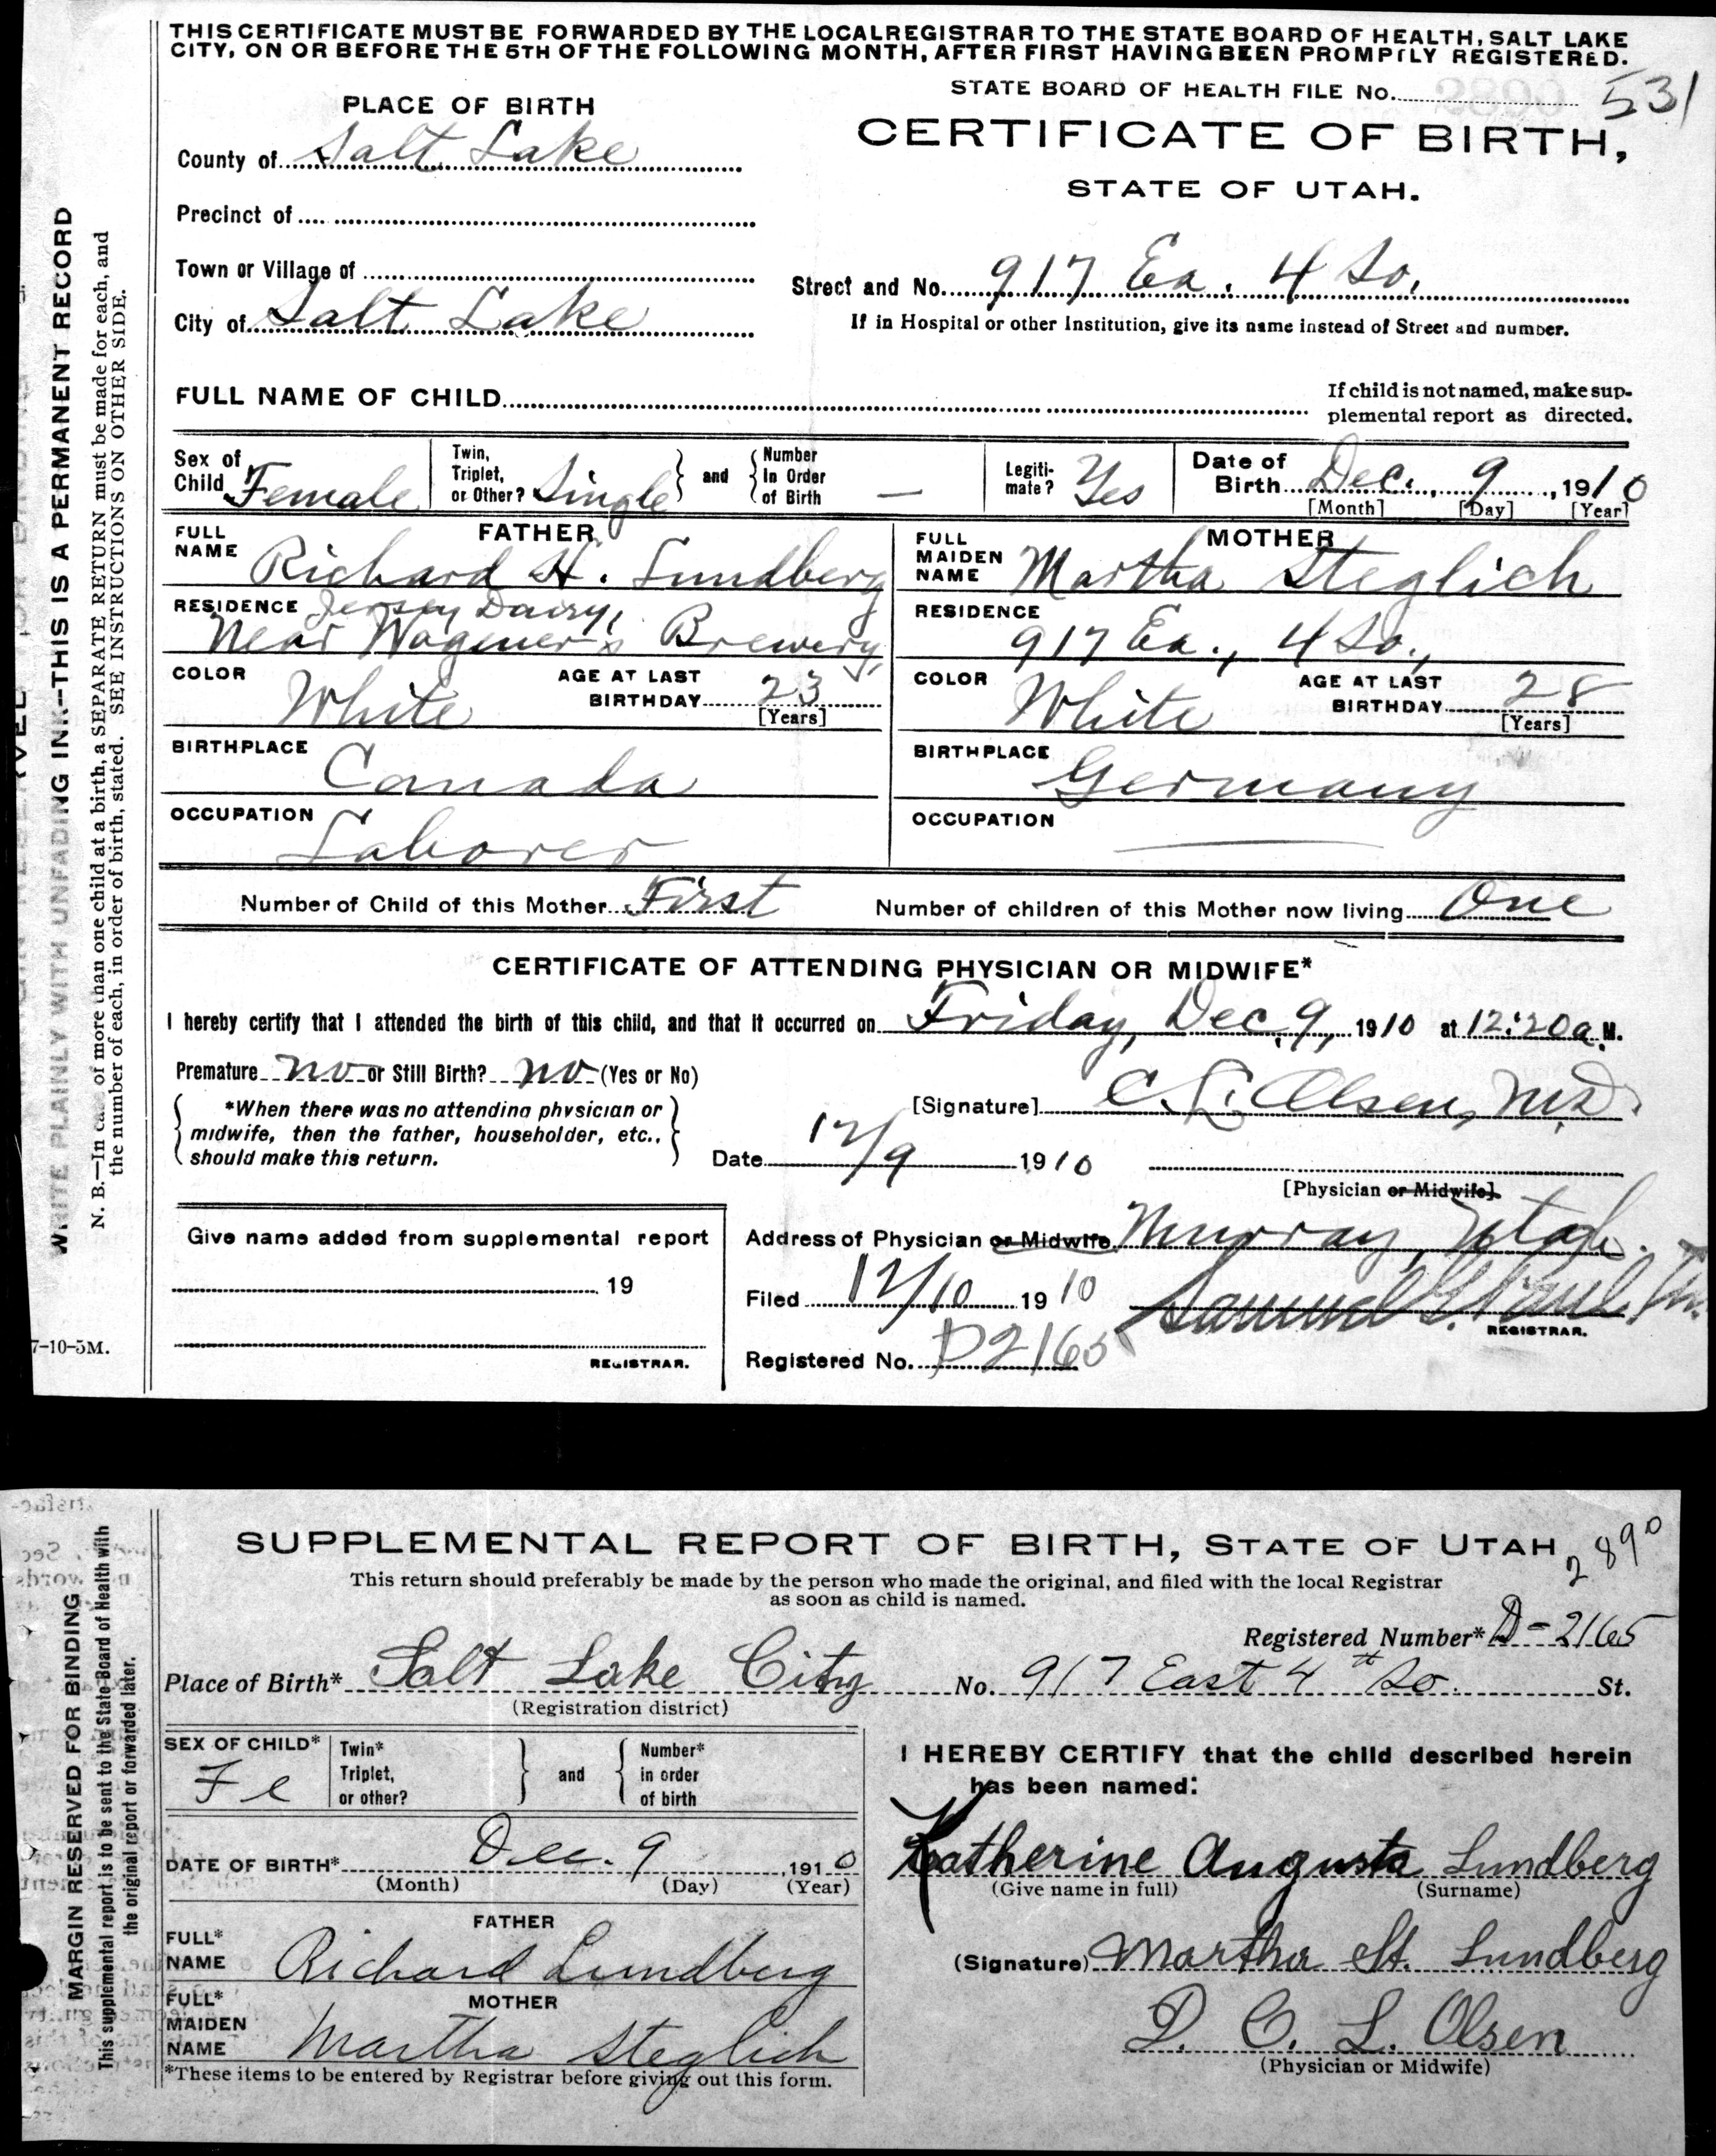 THIS CERTIFICATE MUST BE FORWARDED BY THE LOCAL REGISTRAR TO THE STATE BOARD OF HEALTH, SALT LAKE
CITY, ON OR BEFORE THE 5TH OF THE FOLLOWING MONTH, AFTER FIRST HAVING BEEN PROMPTLY REGISTERED.
STATE BOARD OF HEALTH FILE No. 531
PLACE OF BIRTH
CERTIFICATE OF BIRTH,
STATE OF UTAH.
County of Salt Lake
Precinct of
Town or Village of
Street and No. 917 Ea. 4 So.
City of Salt Lake
If in Hospital or other Institution, give its name instead of Street and number.
FULL NAME OF CHILD
If child is not named, make sup-
plemental report as directed.
Sex of Child Female
Twin, Triplet, or Other? Single and Number In Order of Birth —
Legiti-mate? Yes
Date of Birth Dec. 9, 1910
[Month] [Day] [Year]
FATHER
FULL NAME Richard H. Lundberg
RESIDENCE Jersey Dairy,
Near Wagener's Brewery,
COLOR White AGE AT LAST BIRTHDAY 23
[Years]
BIRTHPLACE Canada
OCCUPATION Laborer
MOTHER
FULL MAIDEN NAME Martha Steglich
RESIDENCE
917 Ea., 4 So.,
COLOR White AGE AT LAST BIRTHDAY 28
[Years]
BIRTHPLACE Germany
OCCUPATION
Number of Child of this Mother First Number of children of this Mother now living One
CERTIFICATE OF ATTENDING PHYSICIAN OR MIDWIFE*
I hereby certify that I attended the birth of this child, and that it occurred on Friday, Dec. 9, 1910 at 12:20 a. M.
Premature no or Still Birth? no (Yes or No)
*When there was no attending physician or
midwife, then the father, householder, etc.,
should make this return.
[Signature] C. L. Olsen, M.D.
Date 12/9 1910
[Physician or Midwife].
Give name added from supplemental report
19
REGISTRAR.
Address of Physician or Midwife Murray, Utah.
Filed 12/10 1910 Samuel G. Paul
REGISTRAR.
Registered No. D2165
WRITE PLAINLY WITH UNFADING INK--THIS IS A PERMANENT RECORD
N. B.—In case of more than one child at a birth, a SEPARATE RETURN must be made for each, and
the number of each, in order of birth, stated. SEE INSTRUCTIONS ON OTHER SIDE.
7-10-5M.
SUPPLEMENTAL REPORT OF BIRTH, STATE OF UTAH
2890
This return should preferably be made by the person who made the original, and filed with the local Registrar
as soon as child is named.
Registered Number* D-2165
Place of Birth* Salt Lake City No. 917 East 4th So. St.
(Registration district)
SEX OF CHILD* Fe
Twin* Triplet, or other? and Number* in order of birth
DATE OF BIRTH* Dec. 9, 1910
(Month) (Day) (Year)
FATHER
FULL* NAME Richard Lundberg
MOTHER
FULL* MAIDEN NAME Martha Steglich
*These items to be entered by Registrar before giving out this form.
I HEREBY CERTIFY that the child described herein
has been named:
Katherine Augusta Lundberg
(Give name in full) (Surname)
(Signature) Martha St. Lundberg
D. C. L. Olsen
(Physician or Midwife)
MARGIN RESERVED FOR BINDING
This supplemental report is to be sent to the State Board of Health with
the original report or forwarded later.